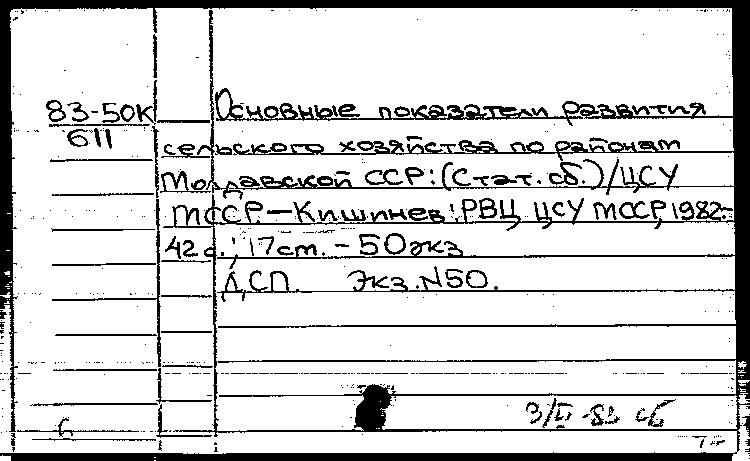 83-50К
611
Основные показатели развития
сельского хозяйства по районам
Молдавской ССР: (Стат. сб.) / ЦСУ
МССР. — Кишинев: РВЦ ЦСУ МССР, 1982.-
42 с.; 17 см. - 50 экз
ДСП. Экз. N50.
3/II-83 сб
6